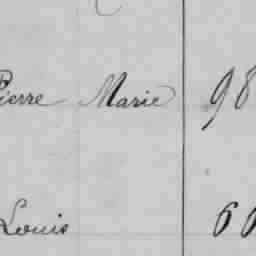 Pierre Marie 98
Louis 60